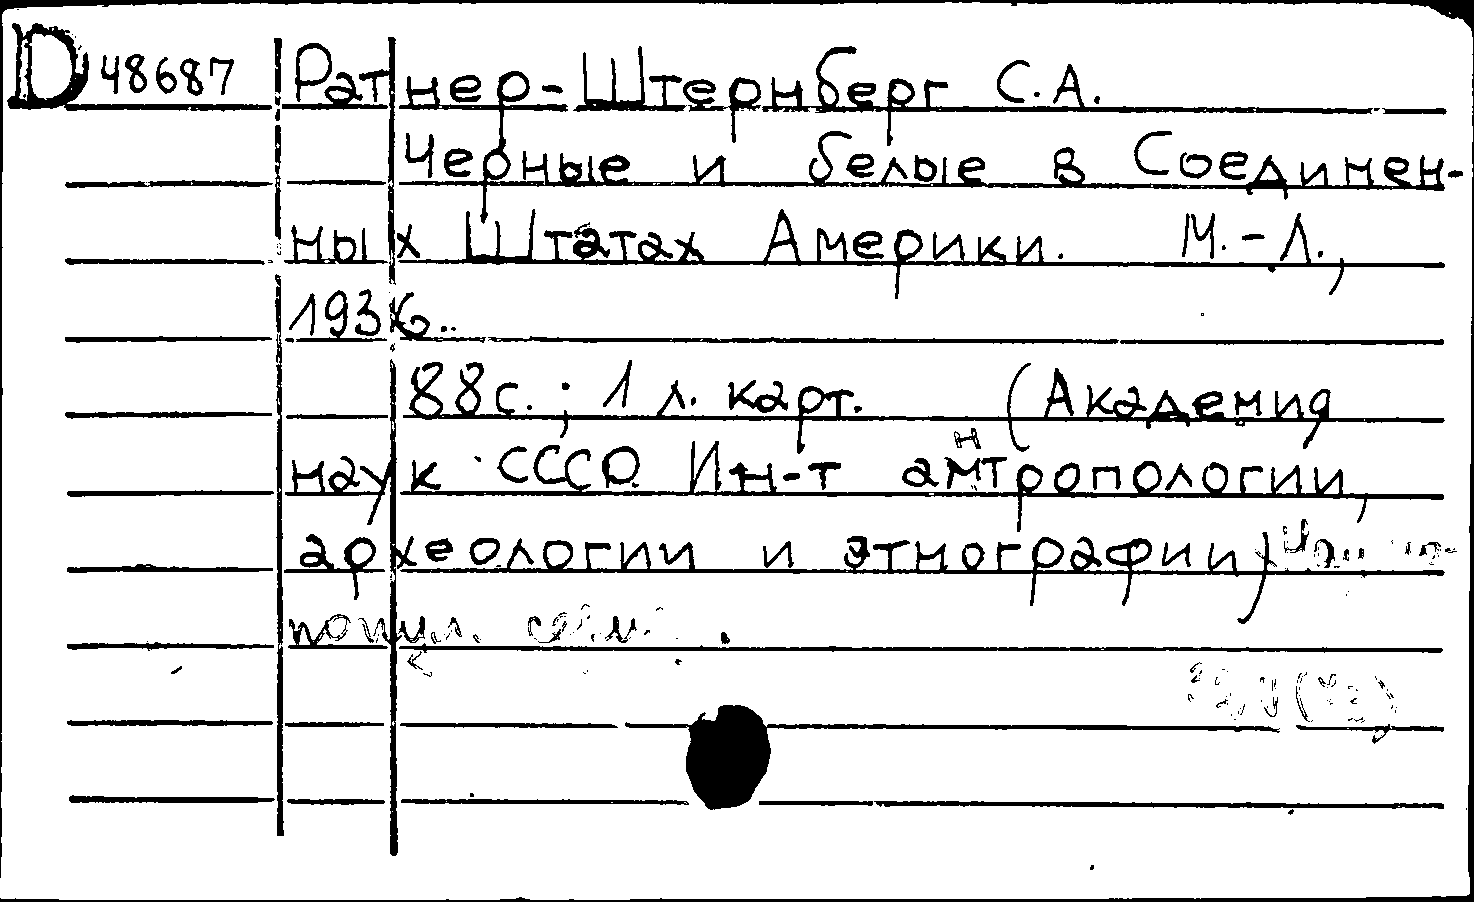 D 48687 Ратнер-Штернберг С.А.
Черные и белые в Соединен-
ных Штатах Америки. М.-Л.,
1936.
88с.; 1 л. карт. (Академия
наук СССР. Ин-т антропологии,
археологии и этнографии)
попул.